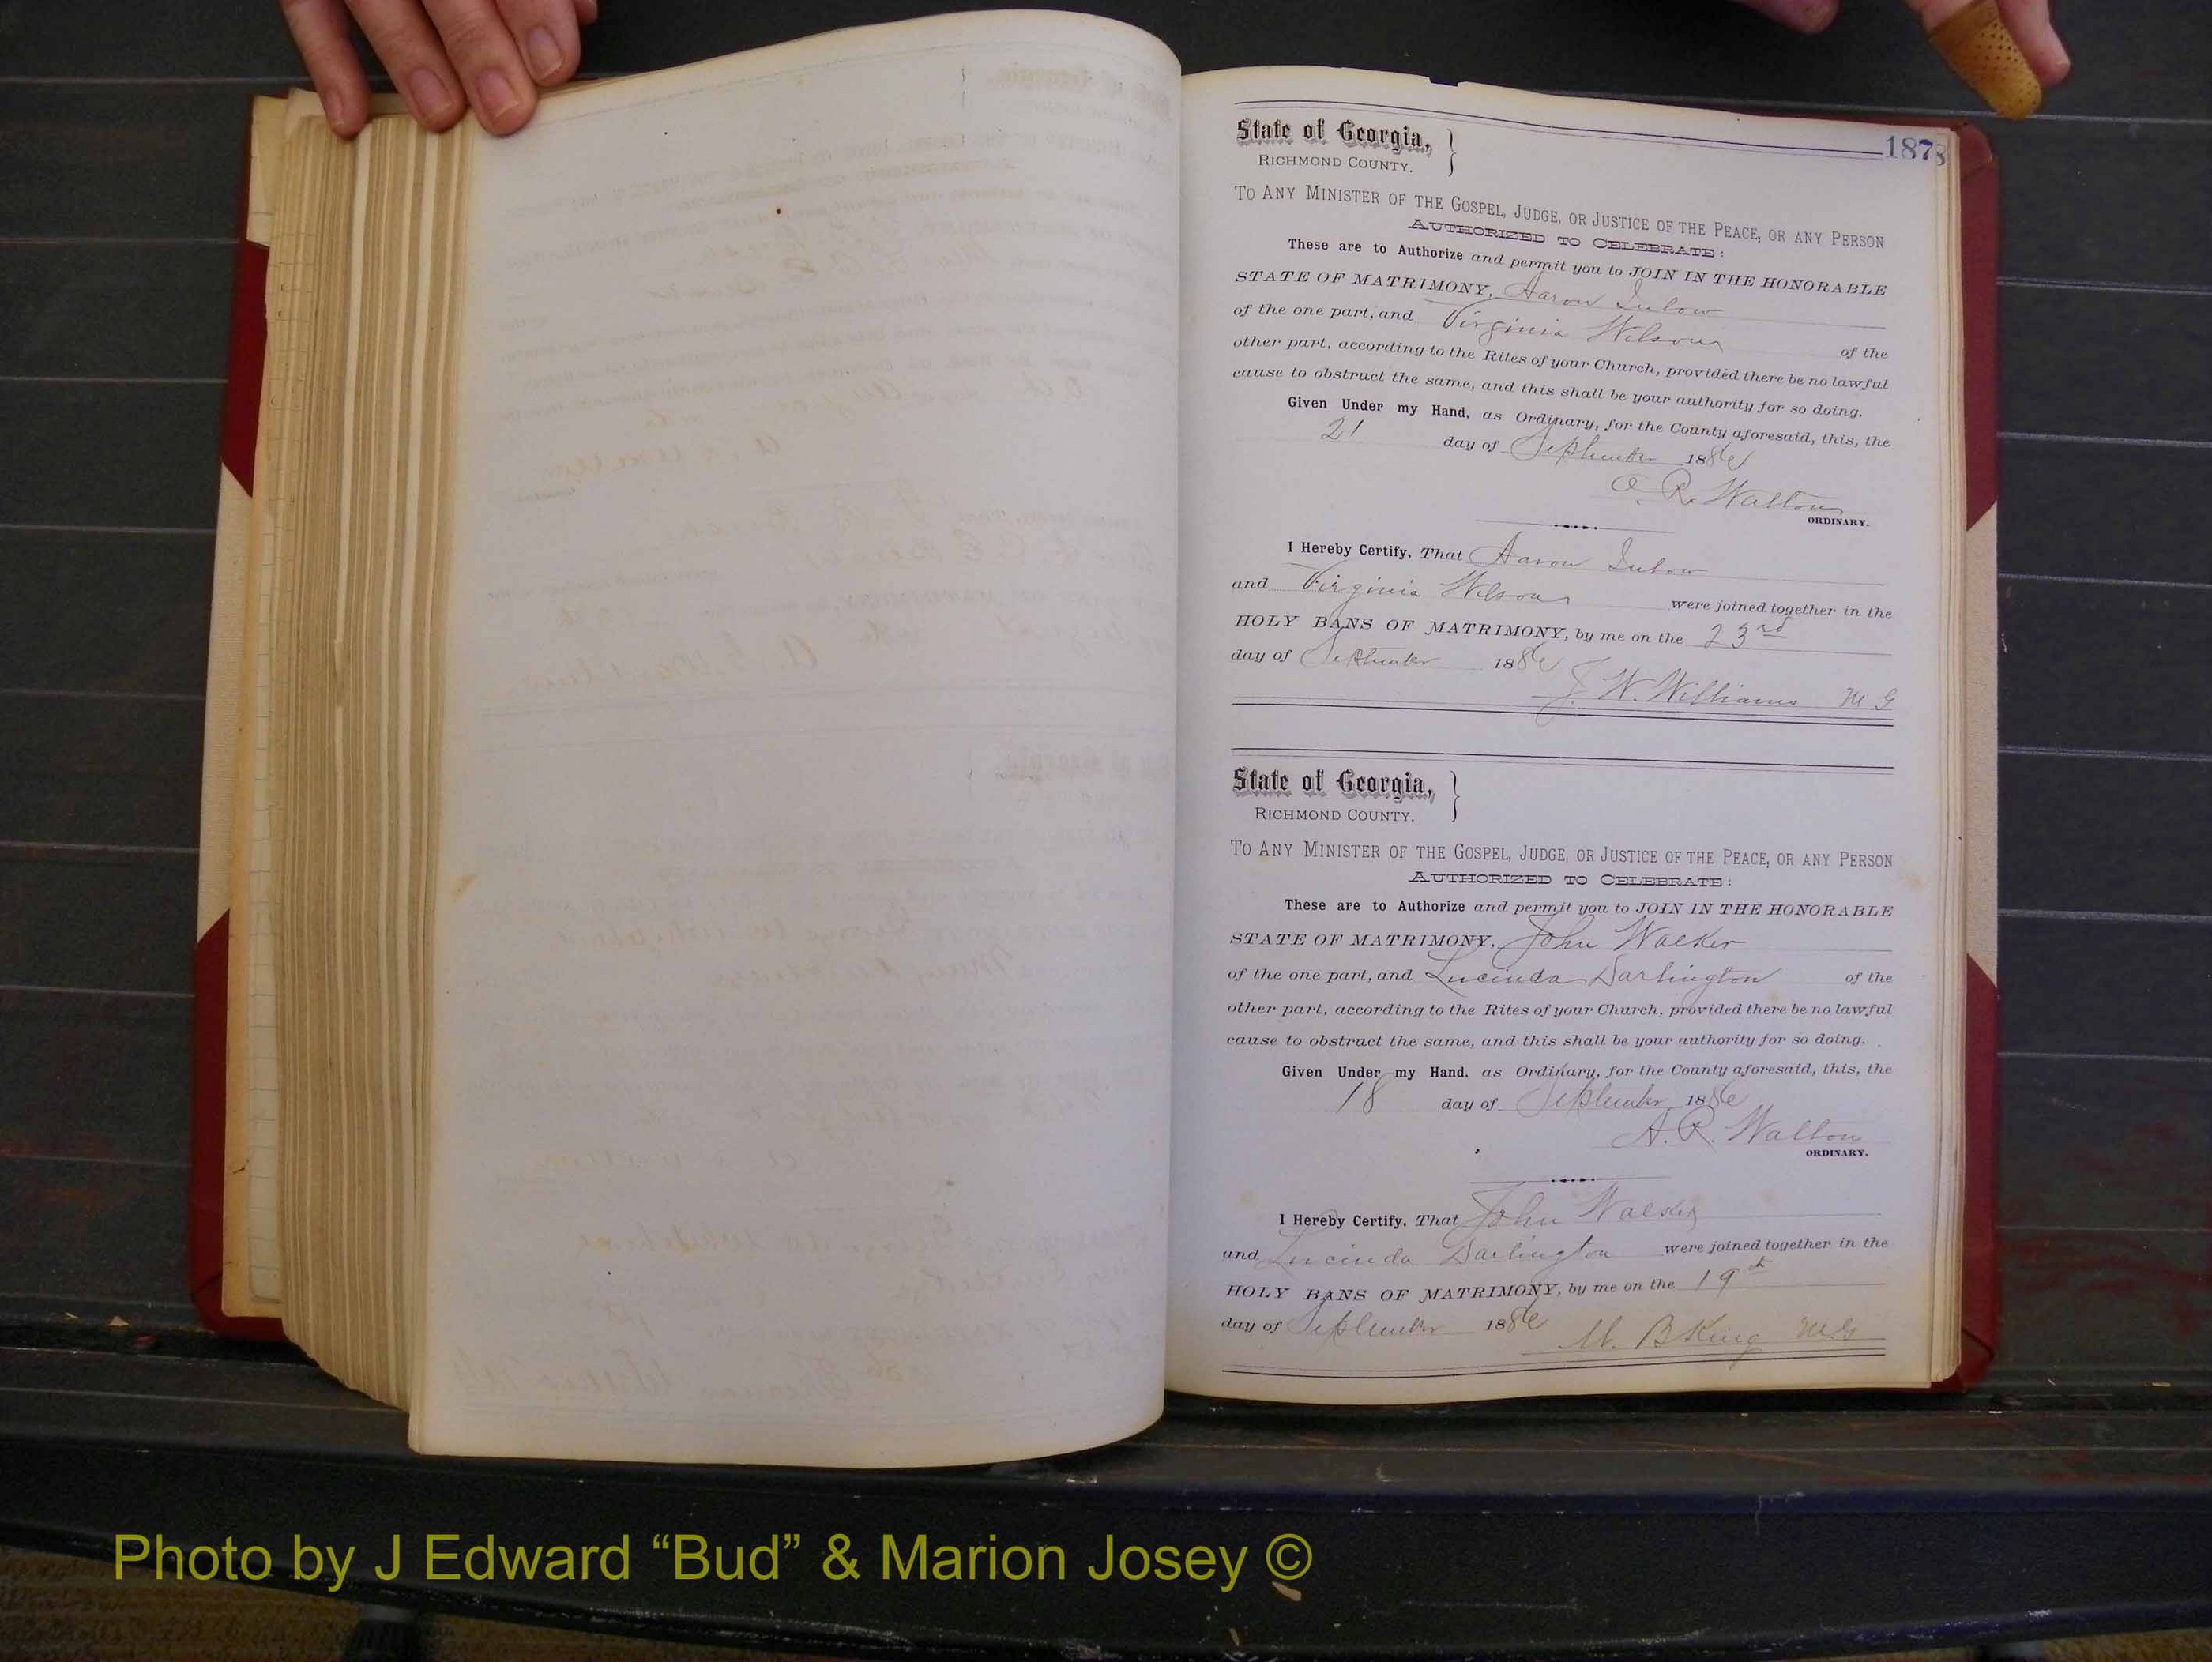 187
State of Georgia,
RICHMOND COUNTY. }
TO ANY MINISTER OF THE GOSPEL, JUDGE, OR JUSTICE OF THE PEACE, OR ANY PERSON
AUTHORIZED TO CELEBRATE:
These are to Authorize and permit you to JOIN IN THE HONORABLE
STATE OF MATRIMONY, Aaron
of the one part, and Virginia Wilson of the
other part, according to the Rites of your Church, provided there be no lawful
cause to obstruct the same, and this shall be your authority for so doing.
Given Under my Hand, as Ordinary, for the County aforesaid, this, the
21 day of September 188
A. R. Walton
ORDINARY.
I Hereby Certify, That Aaron
and Virginia Wilson were joined together in the
HOLY BANS OF MATRIMONY, by me on the 23rd
day of September 188
J. W. Williams M G
State of Georgia,
RICHMOND COUNTY. }
TO ANY MINISTER OF THE GOSPEL, JUDGE, OR JUSTICE OF THE PEACE, OR ANY PERSON
AUTHORIZED TO CELEBRATE:
These are to Authorize and permit you to JOIN IN THE HONORABLE
STATE OF MATRIMONY, John Walker
of the one part, and Lucinda Darlington of the
other part, according to the Rites of your Church, provided there be no lawful
cause to obstruct the same, and this shall be your authority for so doing.
Given Under my Hand, as Ordinary, for the County aforesaid, this, the
18 day of September 1886
A. R. Walton
ORDINARY.
I Hereby Certify, That John Walker
and Lucinda Darlington were joined together in the
HOLY BANS OF MATRIMONY, by me on the 19th
day of September 1886
B King M.G
Photo by J Edward “Bud” & Marion Josey ©